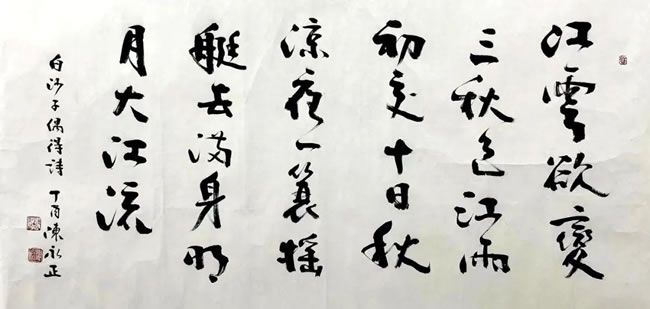 江雲欲變
三秋色江雨
初交十日秋
涼夜一蓑搖
艇去滿身明
月大江流
白沙子偶得詩 丁酉陳永正